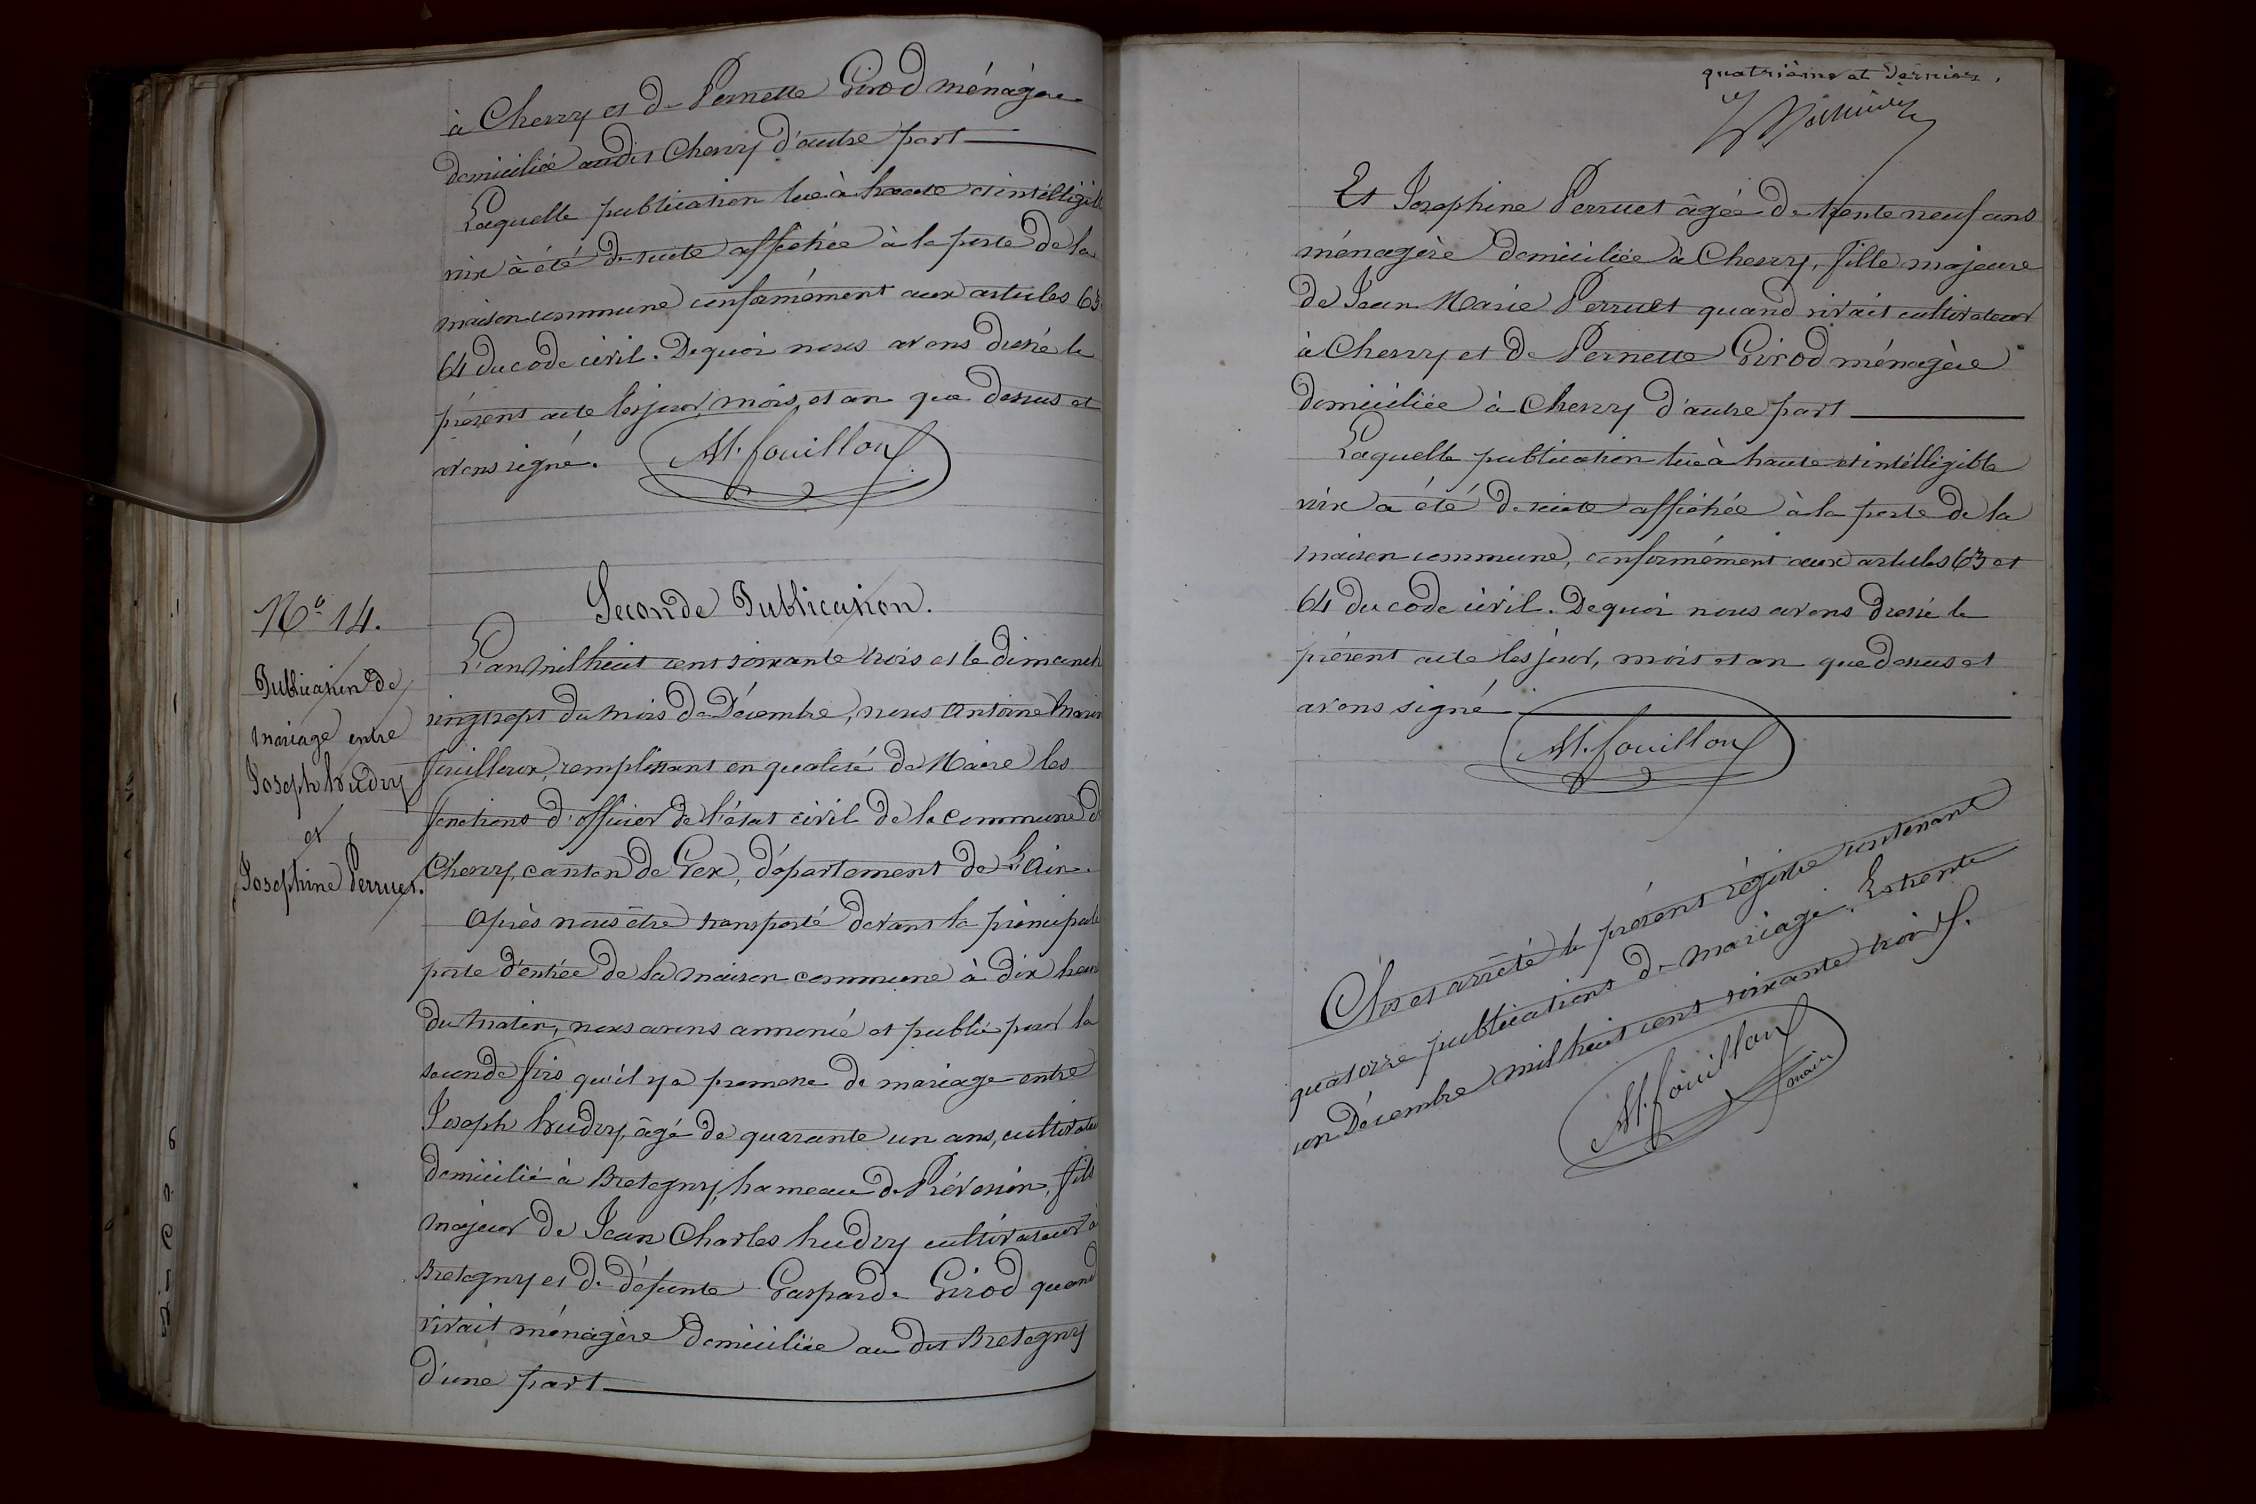 à Chevry et de Pernette Girod ménagère
domiciliée audit Chevry d'autre part
Laquelle publication lue à haute et intélligible
voix à été de suite affichée à la porte de la
maison commune conformément aux articles 63
64 du code civil. De quoi nous avons dressé le
présent acte les jour, mois, et an que dessus et
avons signé. M. fouilloux
Seconde Publication.
No 14.
Publication de
mariage entre
Joseph hudry
et
Josephine Perruet.
L'an mil huit cent soixante trois et le dimanch
vingt sept du mois de Décembre, nous Antoine Marin
fouilloux, remplissant en qualité de Maire les
fonctions d'officier de l'état civil de la commune d
Chevry, canton de Gex, département de L'Ain.
Après nous être transporté devant la principale
porte d'entrée de la maison commune à dix heur
du matin, nous avons annoncé et publié pour la
seconde fois qu'il y a promesse de mariage entre
Joseph hudry, âgé de quarante un ans, cultivateu
domicilié à Bretegny, hameau de Prévessin, fils
majeur de Jean Charles hudry cultivateur à
Bretegny et de défunte Gasparde Girod quand
vivait ménagère domiciliée au dit Bretegny
d'une part
quatrième et dernier.
Et Josephine Perruet âgée de trente neuf ans
ménagère domiciliée à Chevry, fille majeure
de Jean Marie Perruet quand vivait cultivateur
à Chevry et de Pernette Girod ménagère
domiciliée à Chevry d'autre part
Laquelle publication lue à haute et intélligible
voix a été de suite affichée à la porte de la
maison commune, conformément aux articles 63 et
64 du code civil. De quoi nous avons dressé le
présent acte les jour, mois et an que dessus et
avons signé
M. fouilloux
Clos et arrêté le présent régistre contenant
quatorze publications de mariage. Le trente
un Décembre mil huit cent soixante trois.
M. fouilloux
maire